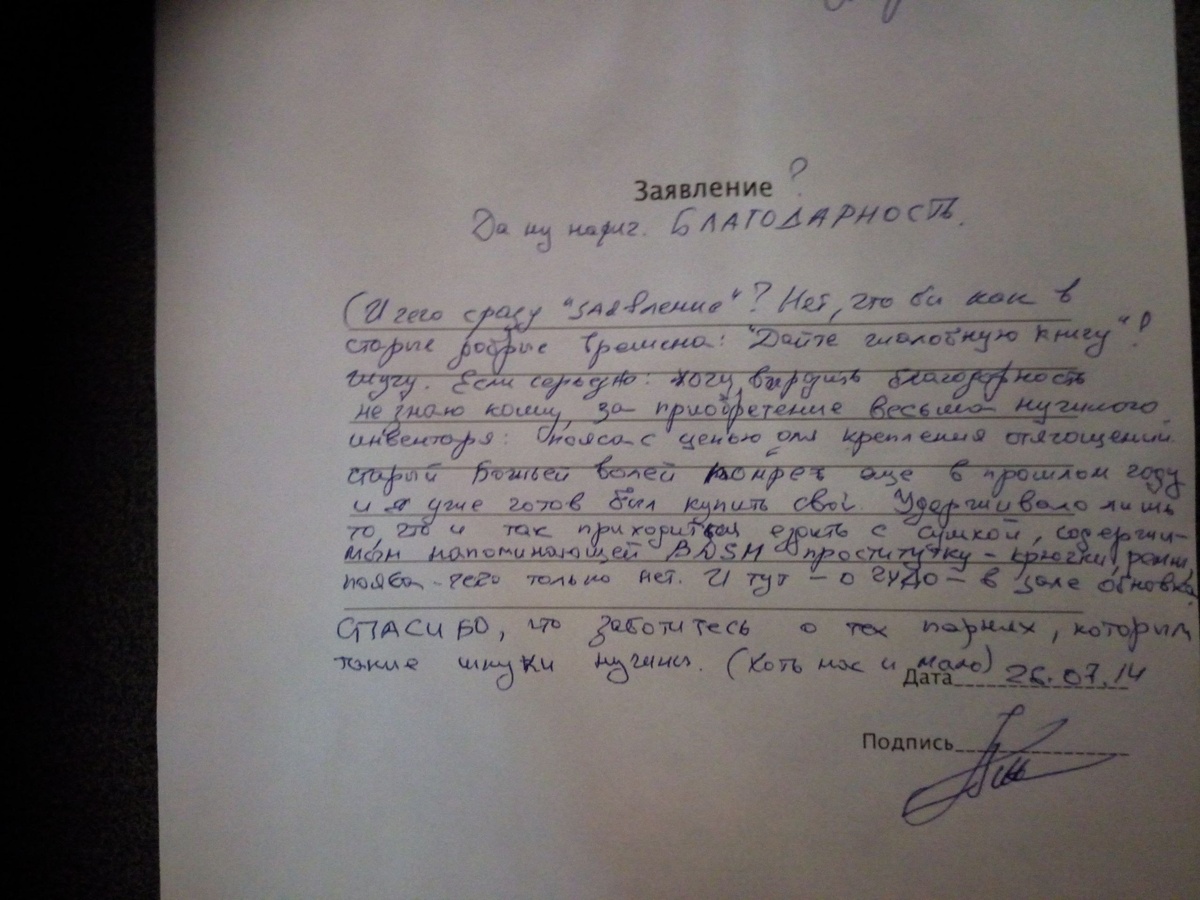 Заявление ?
Да ну нафиг. БЛАГОДАРНОСТЬ.
(И чего сразу "заявление"? Нет, что би как в
старые добрые времена: "Дайте жалобную книгу"!
шучу. Если серьезно: хочу выразить благодарность
не знаю кому, за приобретение весьма нужного
инвентаря: пояса с цепью для крепления отягощений.
старый Божьей волей помрех еще в прошлом году
и я уже готов был купить свой. Удерживало лишь
то, что и так приходиться ездить с сумкой, содержи-
мым напоминающей BDSM проститутку - крючки, ремни,
пояса - чего только нет. И тут - о ЧУДО - в зале обновка.
СПАСИБО, что заботитесь о тех парнях, которым
такие штуки нужны. (Хоть нас и мало)
Дата 26.07.14
Подпись